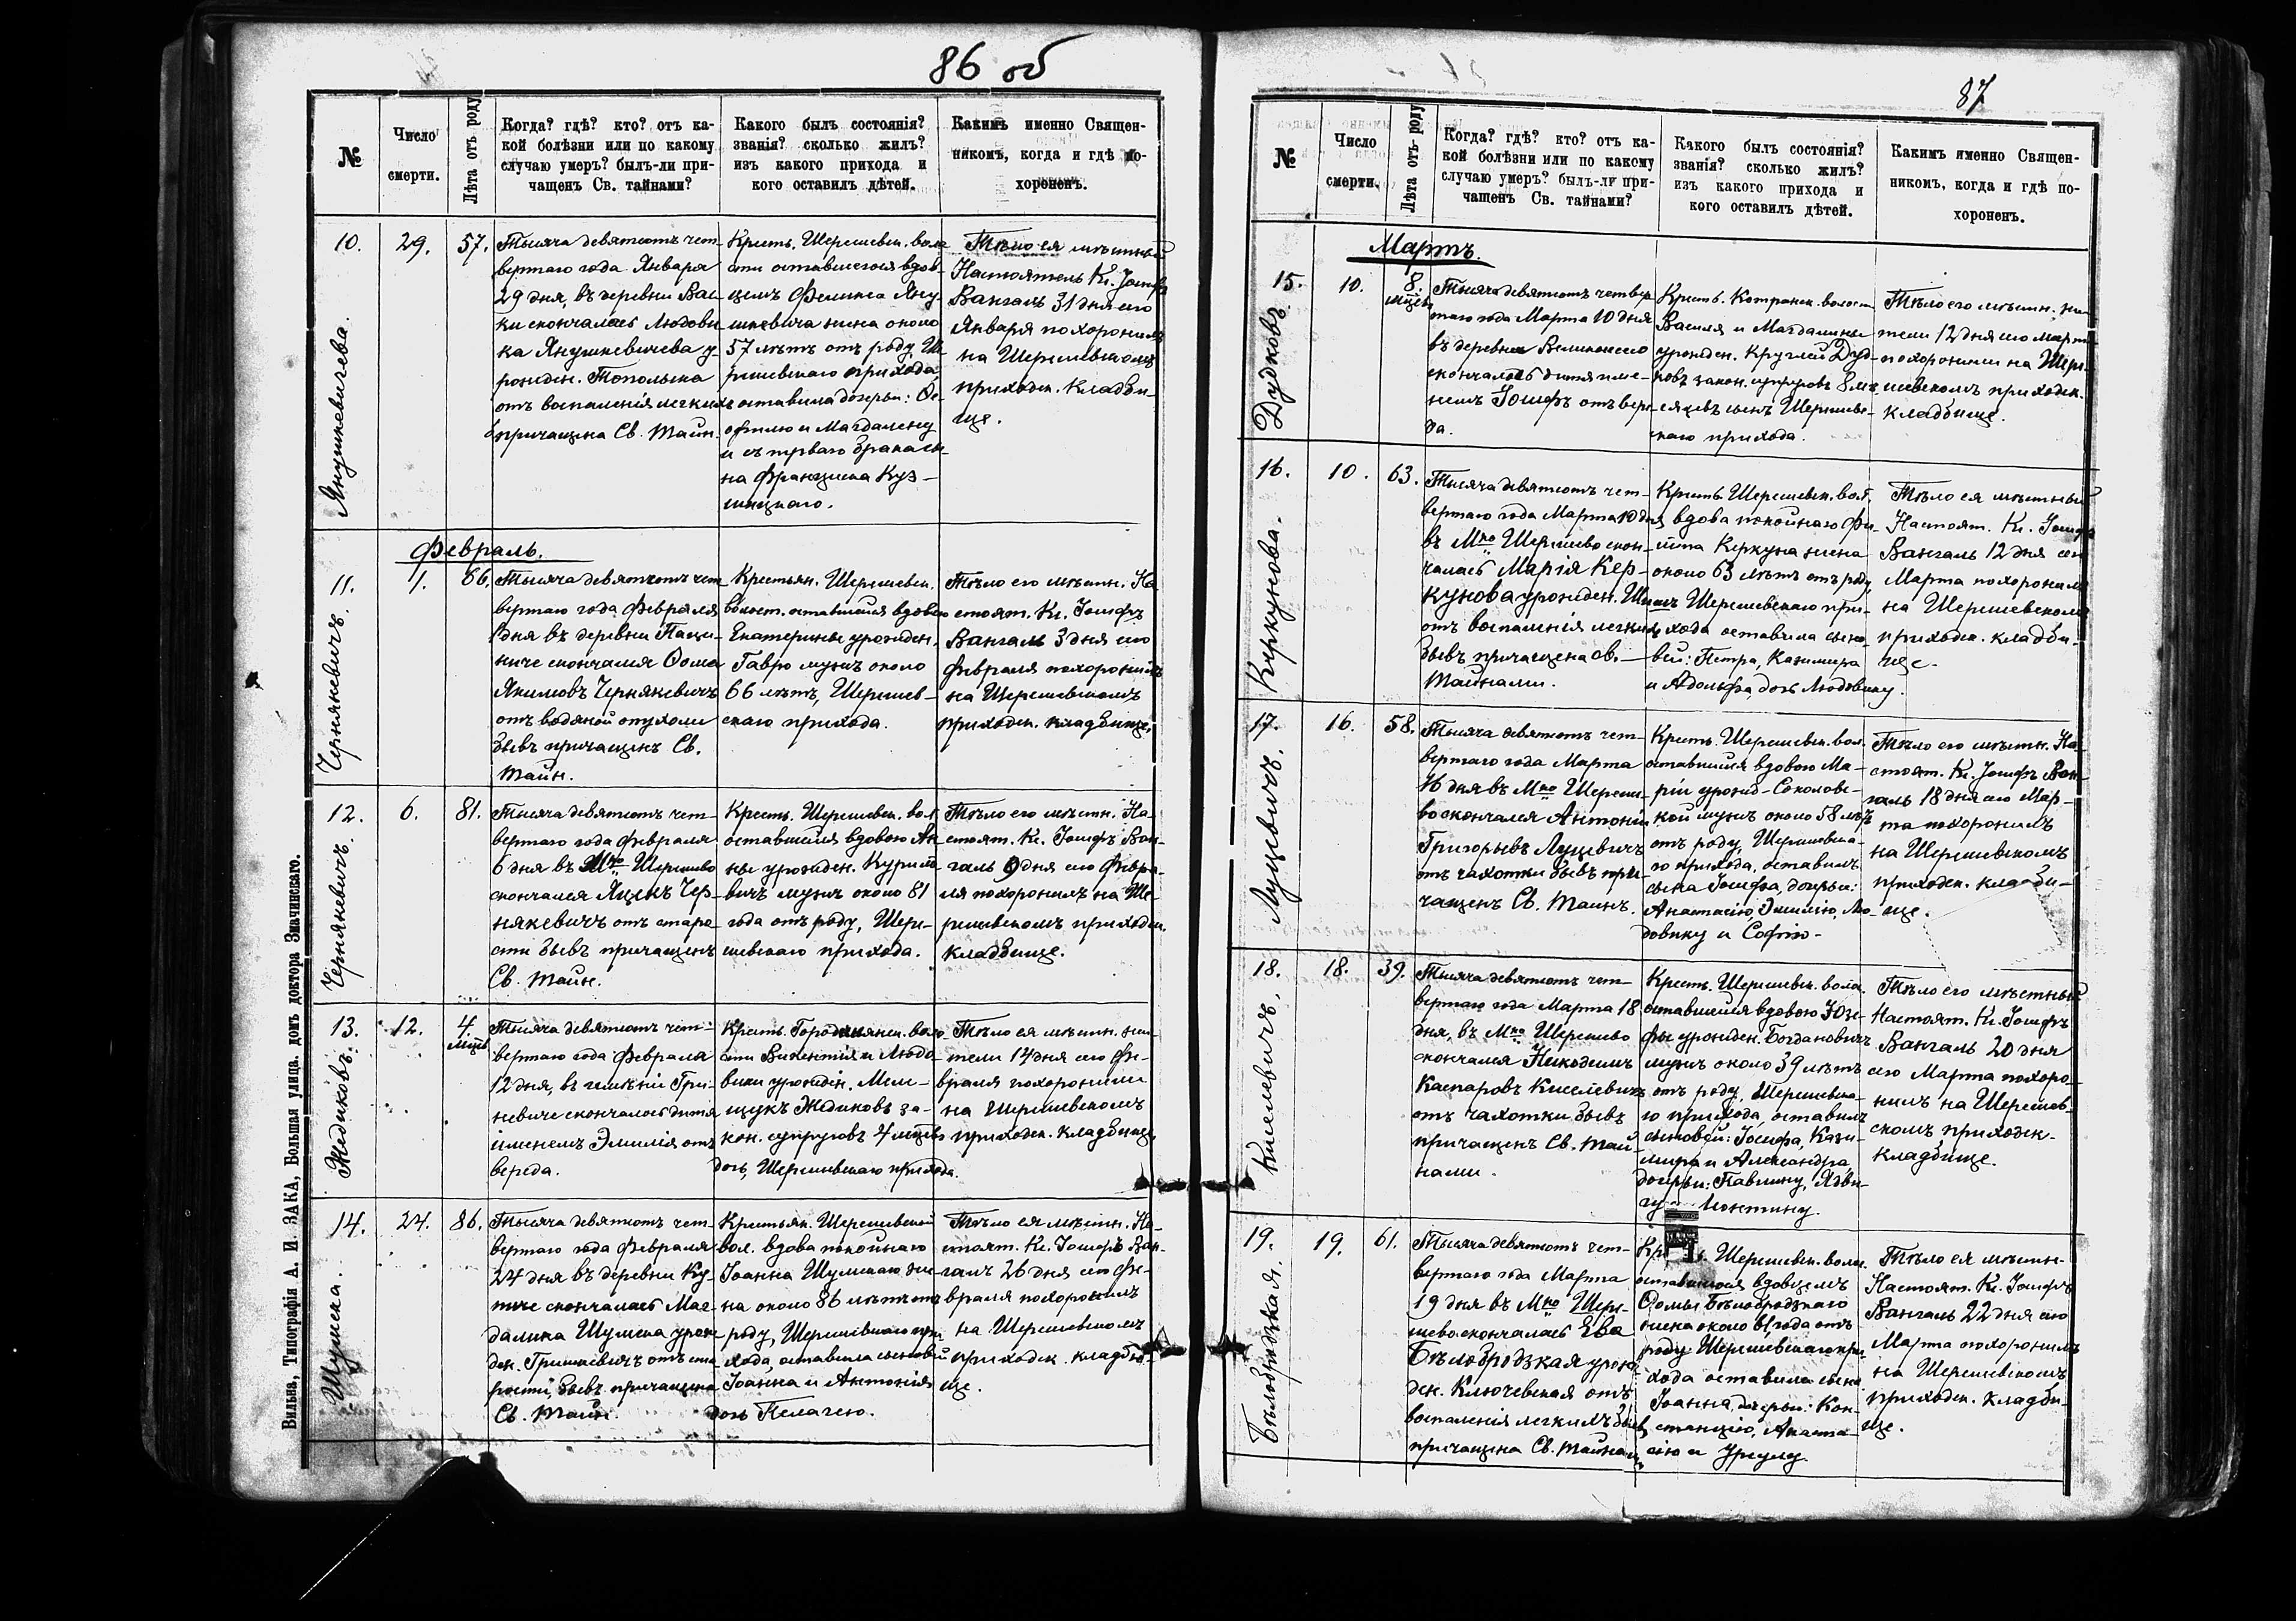 86 об
№
Число
смерти.
Лѣта отъ роду
Когда? гдѣ? кто? отъ ка-
кой болѣзни или по какому
случаю умеръ? былъ-ли при-
чащенъ Св. тайнами?
Какого былъ состоянія?
званія? сколько жилъ?
изъ какого прихода и
кого оставилъ дѣтей.
Какимъ именно Священ-
никомъ, когда и гдѣ по-
хороненъ.
10.
Янушкевичева.
29.
57.
Тысяча девятьсотъ чет-
вертаго года Января
29 дня, въ деревни Вас-
ки скончалась Людови
ка Янушкевичева у-
рожден. Топольска
отъ воспаленія легкихъ
причащена Св. Тайн.
Крест. Шерешевск. воло
сти оставшегося вдов-
цемъ Феликса Яну-
шкевича жена около
57 лѣтъ отъ роду, Ше-
решевскаго прихода
оставила дочерьи: Ѳе-
офилю и Магдалену
и съ перваго брака сы-
на Францишка Куз-
мицкаго.
Тѣло ея мѣстный
Настоятель Кс. Іосифъ
Вангаль 31 дня сего
Января похоронилъ
на Шерешевскомъ
приходск. кладби-
ще.
Февраль.
11.
Чернякевичъ.
1.
66.
Тысяча девятьсотъ чет
вертаго года Февраля
1 дня въ деревни Паци-
ниче скончался Ѳома
Якимовъ Чернякевичъ
отъ водяной опухоли
бывъ причащенъ Св.
Тайн.
Крестьян. Шерешевск.
волост. оставшійся вдовою
Екатерины урожден.
Гаврю мужъ около
66 лѣтъ, Шерешев-
скаго прихода.
Тѣло его мѣстн. На
стоят. Кс. Іосифъ
Вангаль 3 дня сего
Февраля похоронилъ
на Шерешевскомъ
приходск. кладбище.
12.
Чернякевичъ.
6.
81.
Тысяча девятьсотъ чет-
вертаго года Февраля
6 дня въ Мко Шерешево
скончался Яцекъ Чер-
някевичъ отъ старо
сти бывъ причащенъ
Св. Тайн.
Крест. Шерешевск. вол.
оставшійся вдовою Ан
ны урожден. Курило
вичъ мужъ около 81
года отъ роду, Шере-
шевскаго прихода.
Тѣло его мѣстн. На-
стоят. Кс. Іосифъ Ван-
галь 9 дня сего Февра-
ля похоронилъ на Ше-
решевскомъ приходск.
кладбище.
13.
Жедиковъ.
12.
4.
мѣсяц
Тысяча девятьсотъ чет-
вертаго года Февраля
12 дня, въ имѣніи Гри-
невиче скончалось дитя
именемъ Эмилія отъ
вереда.
Крест. Городечнянск. воло-
сти Викентія и Людо
вики урожден. Мель-
щукъ Жедиковъ за-
кон. супруговъ 4 мѣсяцевъ
дочь, Шерешевскаго прихода.
Тѣло ея мѣстн. жи-
тели 14 дня сего Фе-
враля похоронили
на Шерешевскомъ
приходск. кладбище.
14.
Шумска.
24.
86.
Тысяча девятьсотъ чет-
вертаго года Февраля
24 дня въ деревни Ку-
пиче скончалась Маг-
далина Шумска урож
ден. Гришкевичъ отъ ста
рости, бывъ причащена
Св. Тайн.
Крестьян. Шерешевской
вол. вдова покойнаго
Іоанна Шумскаго же-
на около 86 лѣтъ отъ
роду, Шерешевскаго при
хода, оставила сыновей
Іоанна и Антонія
дочь Пелагею.
Тѣло ея мѣстн. На-
стоят. Кс. Іосифъ Ван-
галь 26 дня сего Фе-
враля похоронилъ
на Шерешевскомъ
приходск. кладби-
ще.
Вильна, Типографія А. И. ЗАКА, Большая улица. домъ доктора Змачинскаго.
87
№
Число
смерти.
Лѣта отъ роду
Когда? гдѣ? кто? отъ ка-
кой болѣзни или по какому
случаю умеръ? былъ-ли при-
чащенъ Св. тайнами?
Какого былъ состоянія?
званія? сколько жилъ?
изъ какого прихода и
кого оставилъ дѣтей.
Какимъ именно Священ-
никомъ, когда и гдѣ по-
хороненъ.
Мартъ.
15.
Дудковъ.
10.
8.
мѣсяц
Тысяча девятьсотъ четвер
таго года Марта 10 дня
въ деревни
скончалось дитя име-
немъ Іосифъ отъ вере
да.
Крест. Котранск. волост
Василя и Магдалины
урожден. Круглей Дуд-
ковъ закон. супруговъ 8 мѣ
сяцевъ сынъ Шерешев-
скаго прихода.
Тѣло его мѣстн. жи-
тели 12 дня сего Марта
похоронили на Шере-
шевскомъ приходск.
кладбище.
16.
Керкунова.
10.
63.
Тысяча девятьсотъ чет-
вертаго года Марта 10 дня
въ Мко Шерешево скон-
чалась Марія Кер-
кунова урожден.
отъ воспаленія легкихъ
бывъ причащена св.
Тайнами.
Крест. Шерешевск. вол.
вдова покойнаго Фи-
липа Керкуна жена
около 63 лѣтъ отъ роду,
Шерешевскаго при-
хода оставила сыно-
вей: Петра, Казимира
и Адольфа, дочь Людовику.
Тѣло ея мѣстный
Настоят. Кс. Іосифъ
Вангаль 12 дня сего
Марта похоронилъ
на Шерешевскомъ
приходск. кладби-
ще.
17.
Луцевичъ.
16.
58.
Тысяча девятьсотъ чет-
вертаго года Марта
16 дня въ Мко Шереше-
во скончался Антоній
Григорьевъ Луцевичъ
отъ чахотки бывъ при-
чащенъ Св. Таинъ.
Крест. Шерешевск. вол.
оставшійся вдовою Ма-
ріи урожд. Соколов-
кой мужъ около 58 лѣтъ
отъ роду, Шерешевска-
го прихода, оставилъ
сына Іосифа, дочерьи:
Анастасію, Эмилію, Лю-
довику и Софію.
Тѣло его мѣстн. На-
стоят. Кс. Іосифъ Ван-
галь 18 дня сего Мар-
та похоронилъ
на Шерешевскомъ
приходск. кладби-
ще.
18.
Киселевичъ.
18.
39.
Тысяча девятьсотъ чет-
вертаго года Марта 18
дня, въ Мко Шерешево
скончался Никодимъ
Каспаровъ Киселевичъ
отъ чахотки бывъ
причащенъ Св. Тай
нами.
Крест. Шерешевск. воло.
оставшійся вдовою Юзе-
фы урожден. Богдановичъ
мужъ около 39 лѣтъ
отъ роду, Шерешевска-
го прихода, оставилъ
сыновей: Іосифа, Кази-
мира и Александра,
дочерьи: Павлину, Ядви-
гу Леонтину.
Тѣло его мѣстный
Настоят. Кс. Іосифъ
Вангаль 20 дня
сего Марта похоро-
нилъ на Шерешев-
скомъ приходск.
кладбище.
19.
Бѣлобродзкая.
19.
61.
Тысяча девятьсотъ чет-
вертаго года Марта
19 дня въ Мко Шере-
шево скончалась Ева
Бѣлобродзкая урож-
ден. Ключевская отъ
воспаленія легкихъ бывъ
причащена Св. Тайнами
Шерешевск. воло.
оставшегося вдовцемъ
Ѳомы Бѣлобродзкаго
жена около 61 года отъ
роду Шерешевскаго при
хода оставила сына
Іоанна, дочерьи: Кон-
станцію, Анаста-
сію и Урсулу.
Тѣло ея мѣстн.
Настоят. Кс. Іосифъ
Вангаль 22 дня сего
Марта похоронилъ
на Шерешевскомъ
приходск. кладби-
ще.